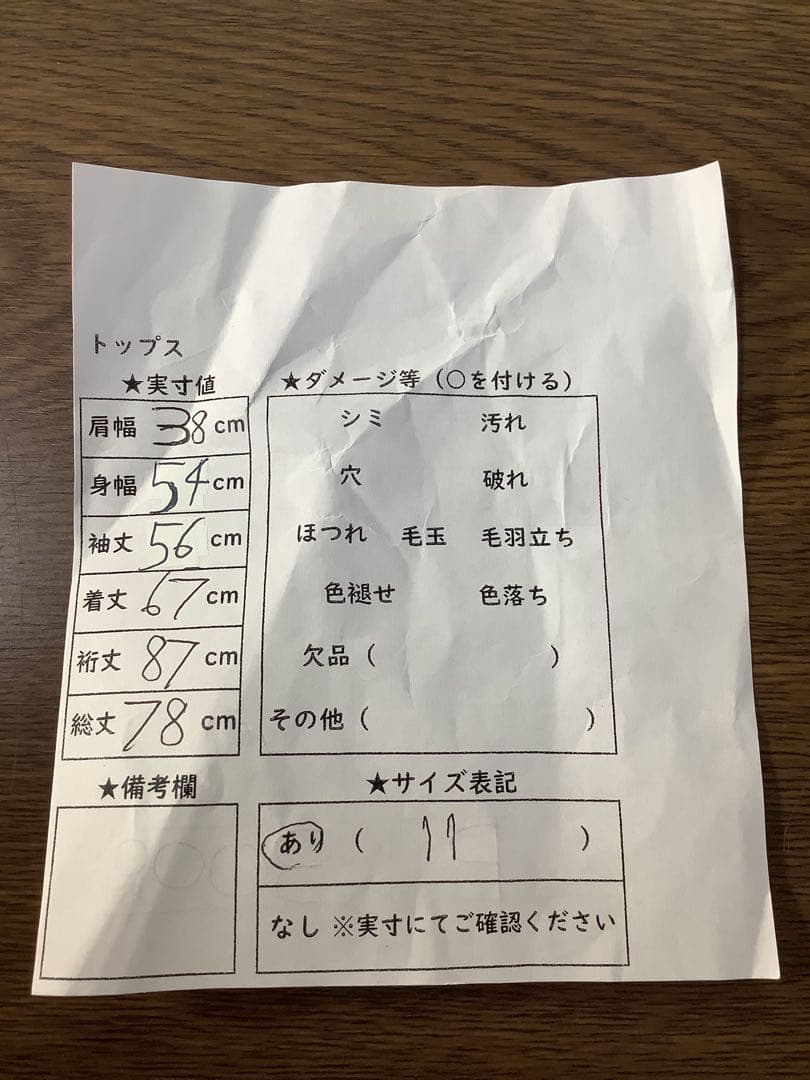 トップス
★実寸値
肩幅 38 cm
身幅 54 cm
袖丈 56 cm
着丈 67 cm
裄丈 87 cm
総丈 78 cm
★ダメージ等（○を付ける）
シミ 汚れ
穴 破れ
ほつれ 毛玉 毛羽立ち
色褪せ 色落ち
欠品（ ）
その他（ ）
★備考欄
★サイズ表記
あり（ 11 ）
なし ※実寸にてご確認ください